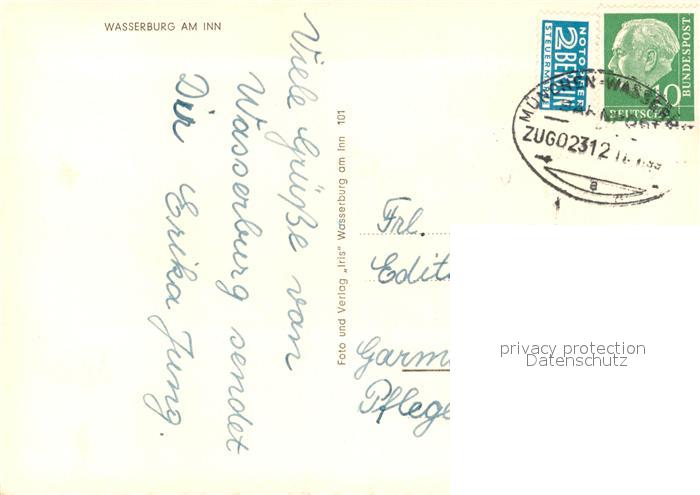 WASSERBURG AM INN
Viele Grüße von
Wasserburg sendet
Dir Erika Jung.
Foto und Verlag „Iris" Wasserburg am Inn 101
NOTOPFER
2 BERLIN
STEUERMARKE
DEUTSCHE
BUNDESPOST
10
MÜNCHEN-WASSERB
BAHNPOST
ZUG02312
a
Frl.
Edit
Garm
Pflege
privacy protection
Datenschutz